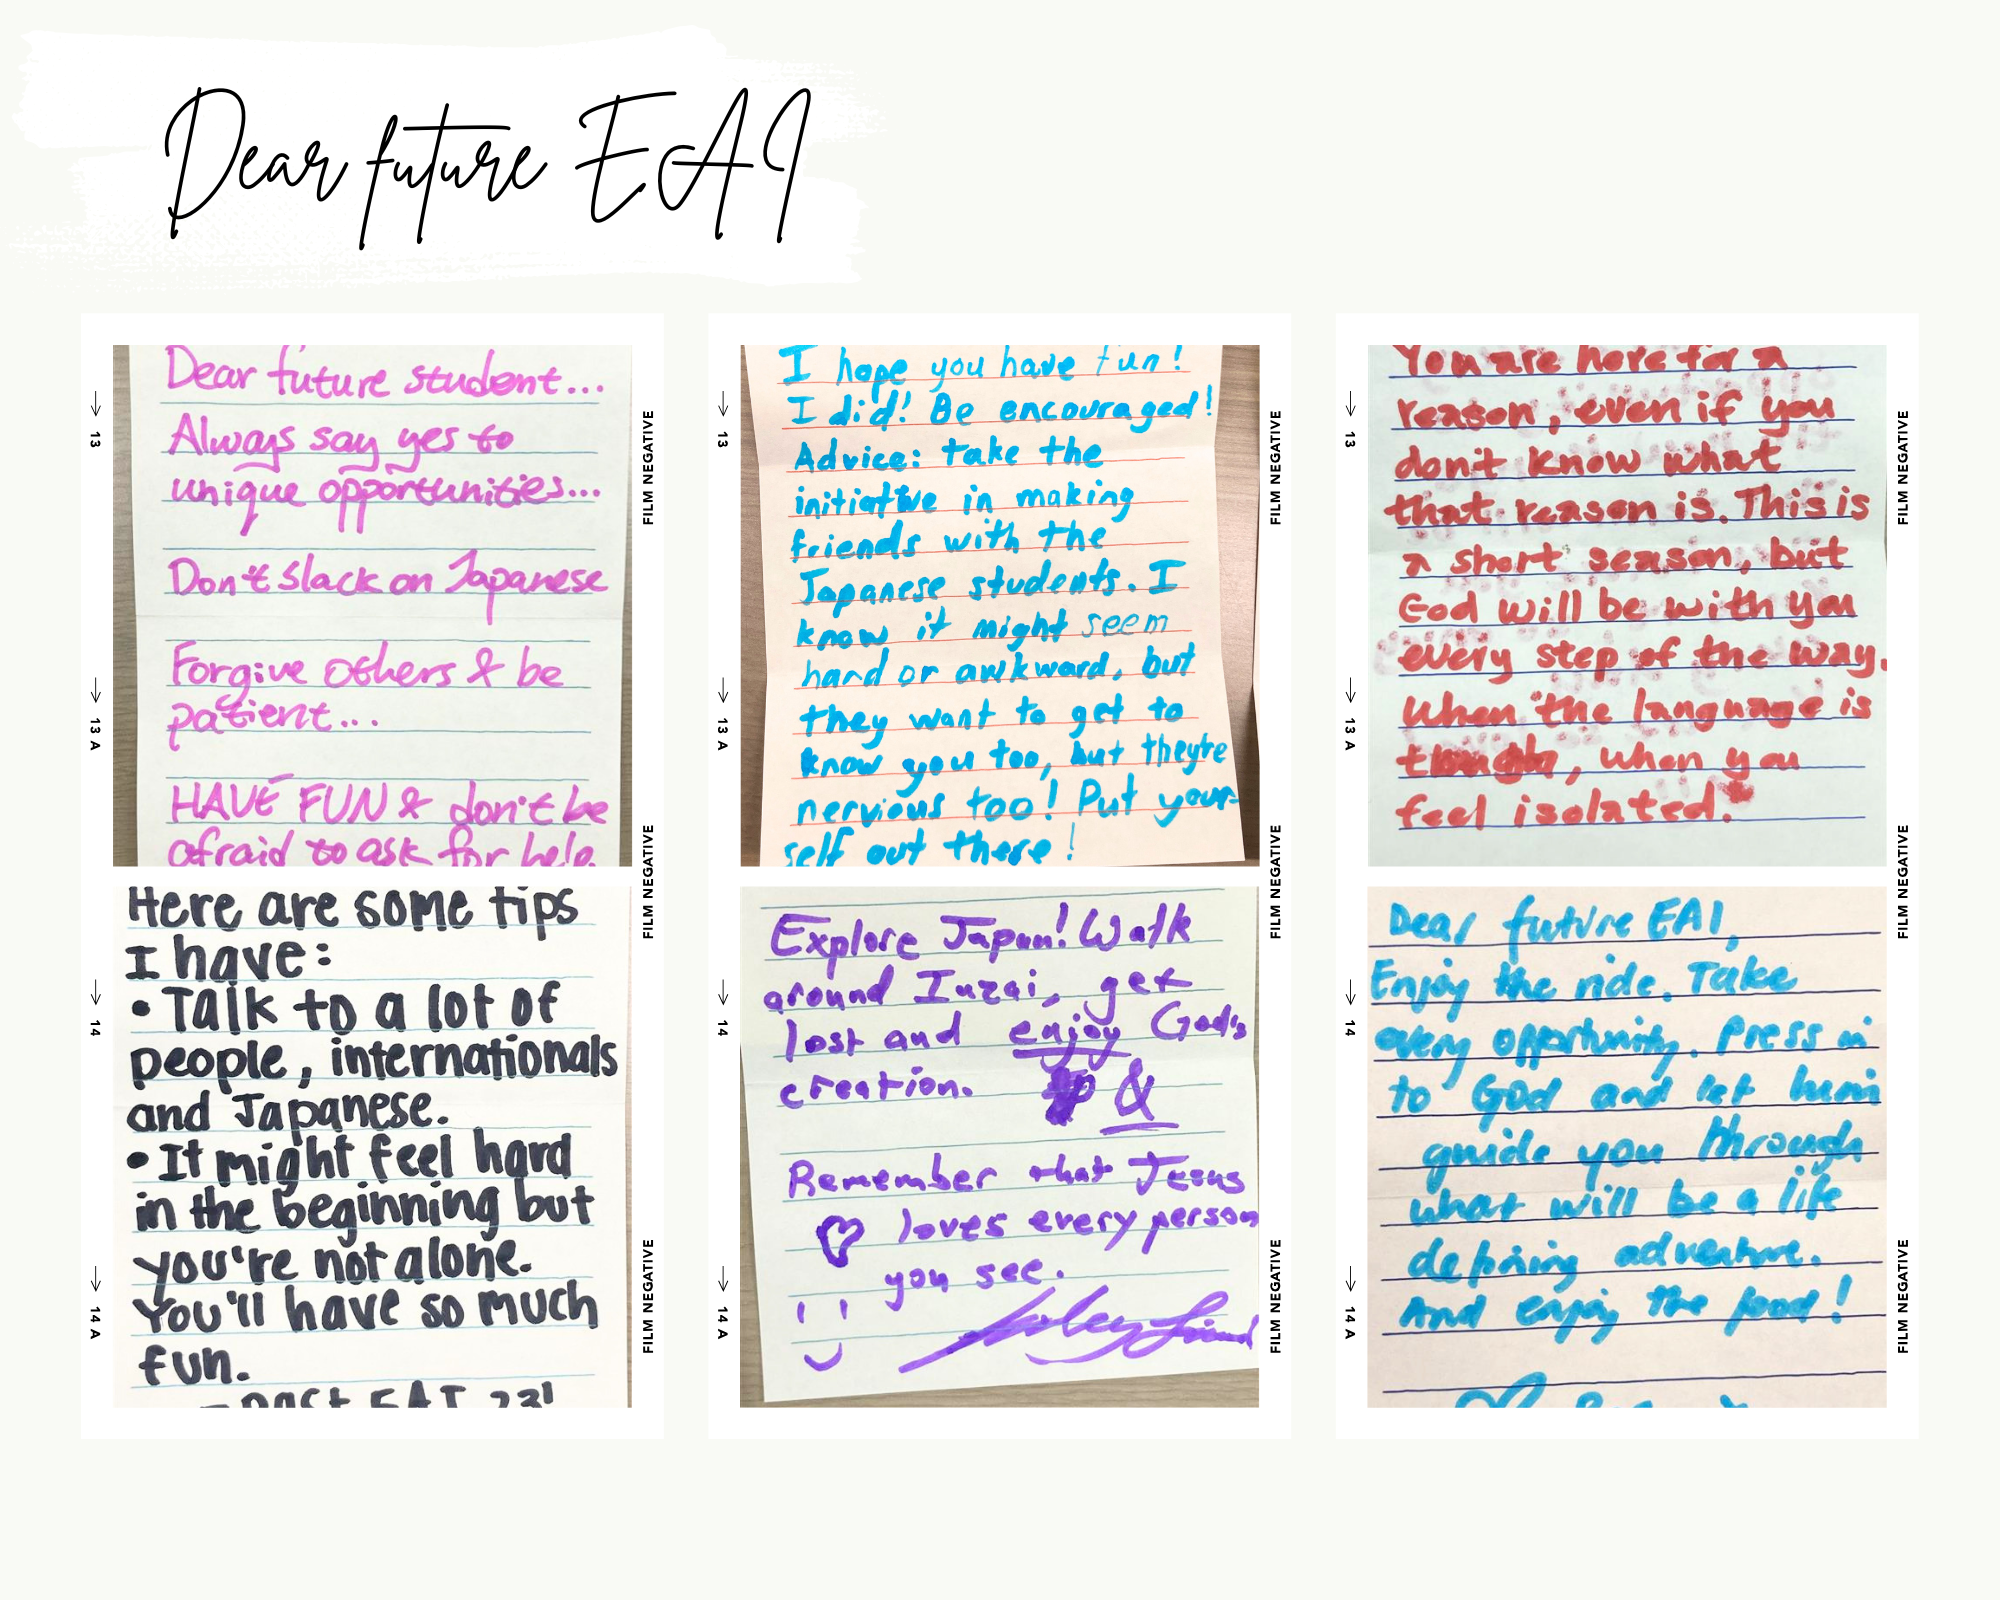 Dear future EAI
↓ 13
↓ 13 A
↓ 14
↓ 14 A
FILM NEGATIVE
FILM NEGATIVE
FILM NEGATIVE
Dear future student...
Always say yes to
unique opportunities...
Don't slack on Japanese
Forgive others & be
patient...
HAVE FUN & don't be
afraid to ask for help.
Here are some tips
I have:
• Talk to a lot of
people, internationals
and Japanese.
• It might feel hard
in the beginning but
you're not alone.
You'll have so much
fun.
- past EAI 23'
↓ 13
↓ 13 A
↓ 14
↓ 14 A
FILM NEGATIVE
FILM NEGATIVE
FILM NEGATIVE
I hope you have fun!
I did! Be encouraged!
Advice: take the
initiative in making
friends with the
Japanese students. I
know it might seem
hard or awkward, but
they want to get to
know you too, but they're
nervious too! Put your-
self out there!
Explore Japan! Walk
around Inzai, get
lost and enjoy God's
creation. &
Remember that Jesus
♡ loves every person
you see.
↓ 13
↓ 13 A
↓ 14
↓ 14 A
FILM NEGATIVE
FILM NEGATIVE
FILM NEGATIVE
You are here for a
reason, even if you
don't know what
that reason is. This is
a short season, but
God will be with you
every step of the way.
When the language is
tough, when you
feel isolated.
Dear future EAI,
Enjoy the ride. Take
every opportunity. Press in
to God and let him
guide you through
what will be a life
defining adventure.
And enjoy the food!